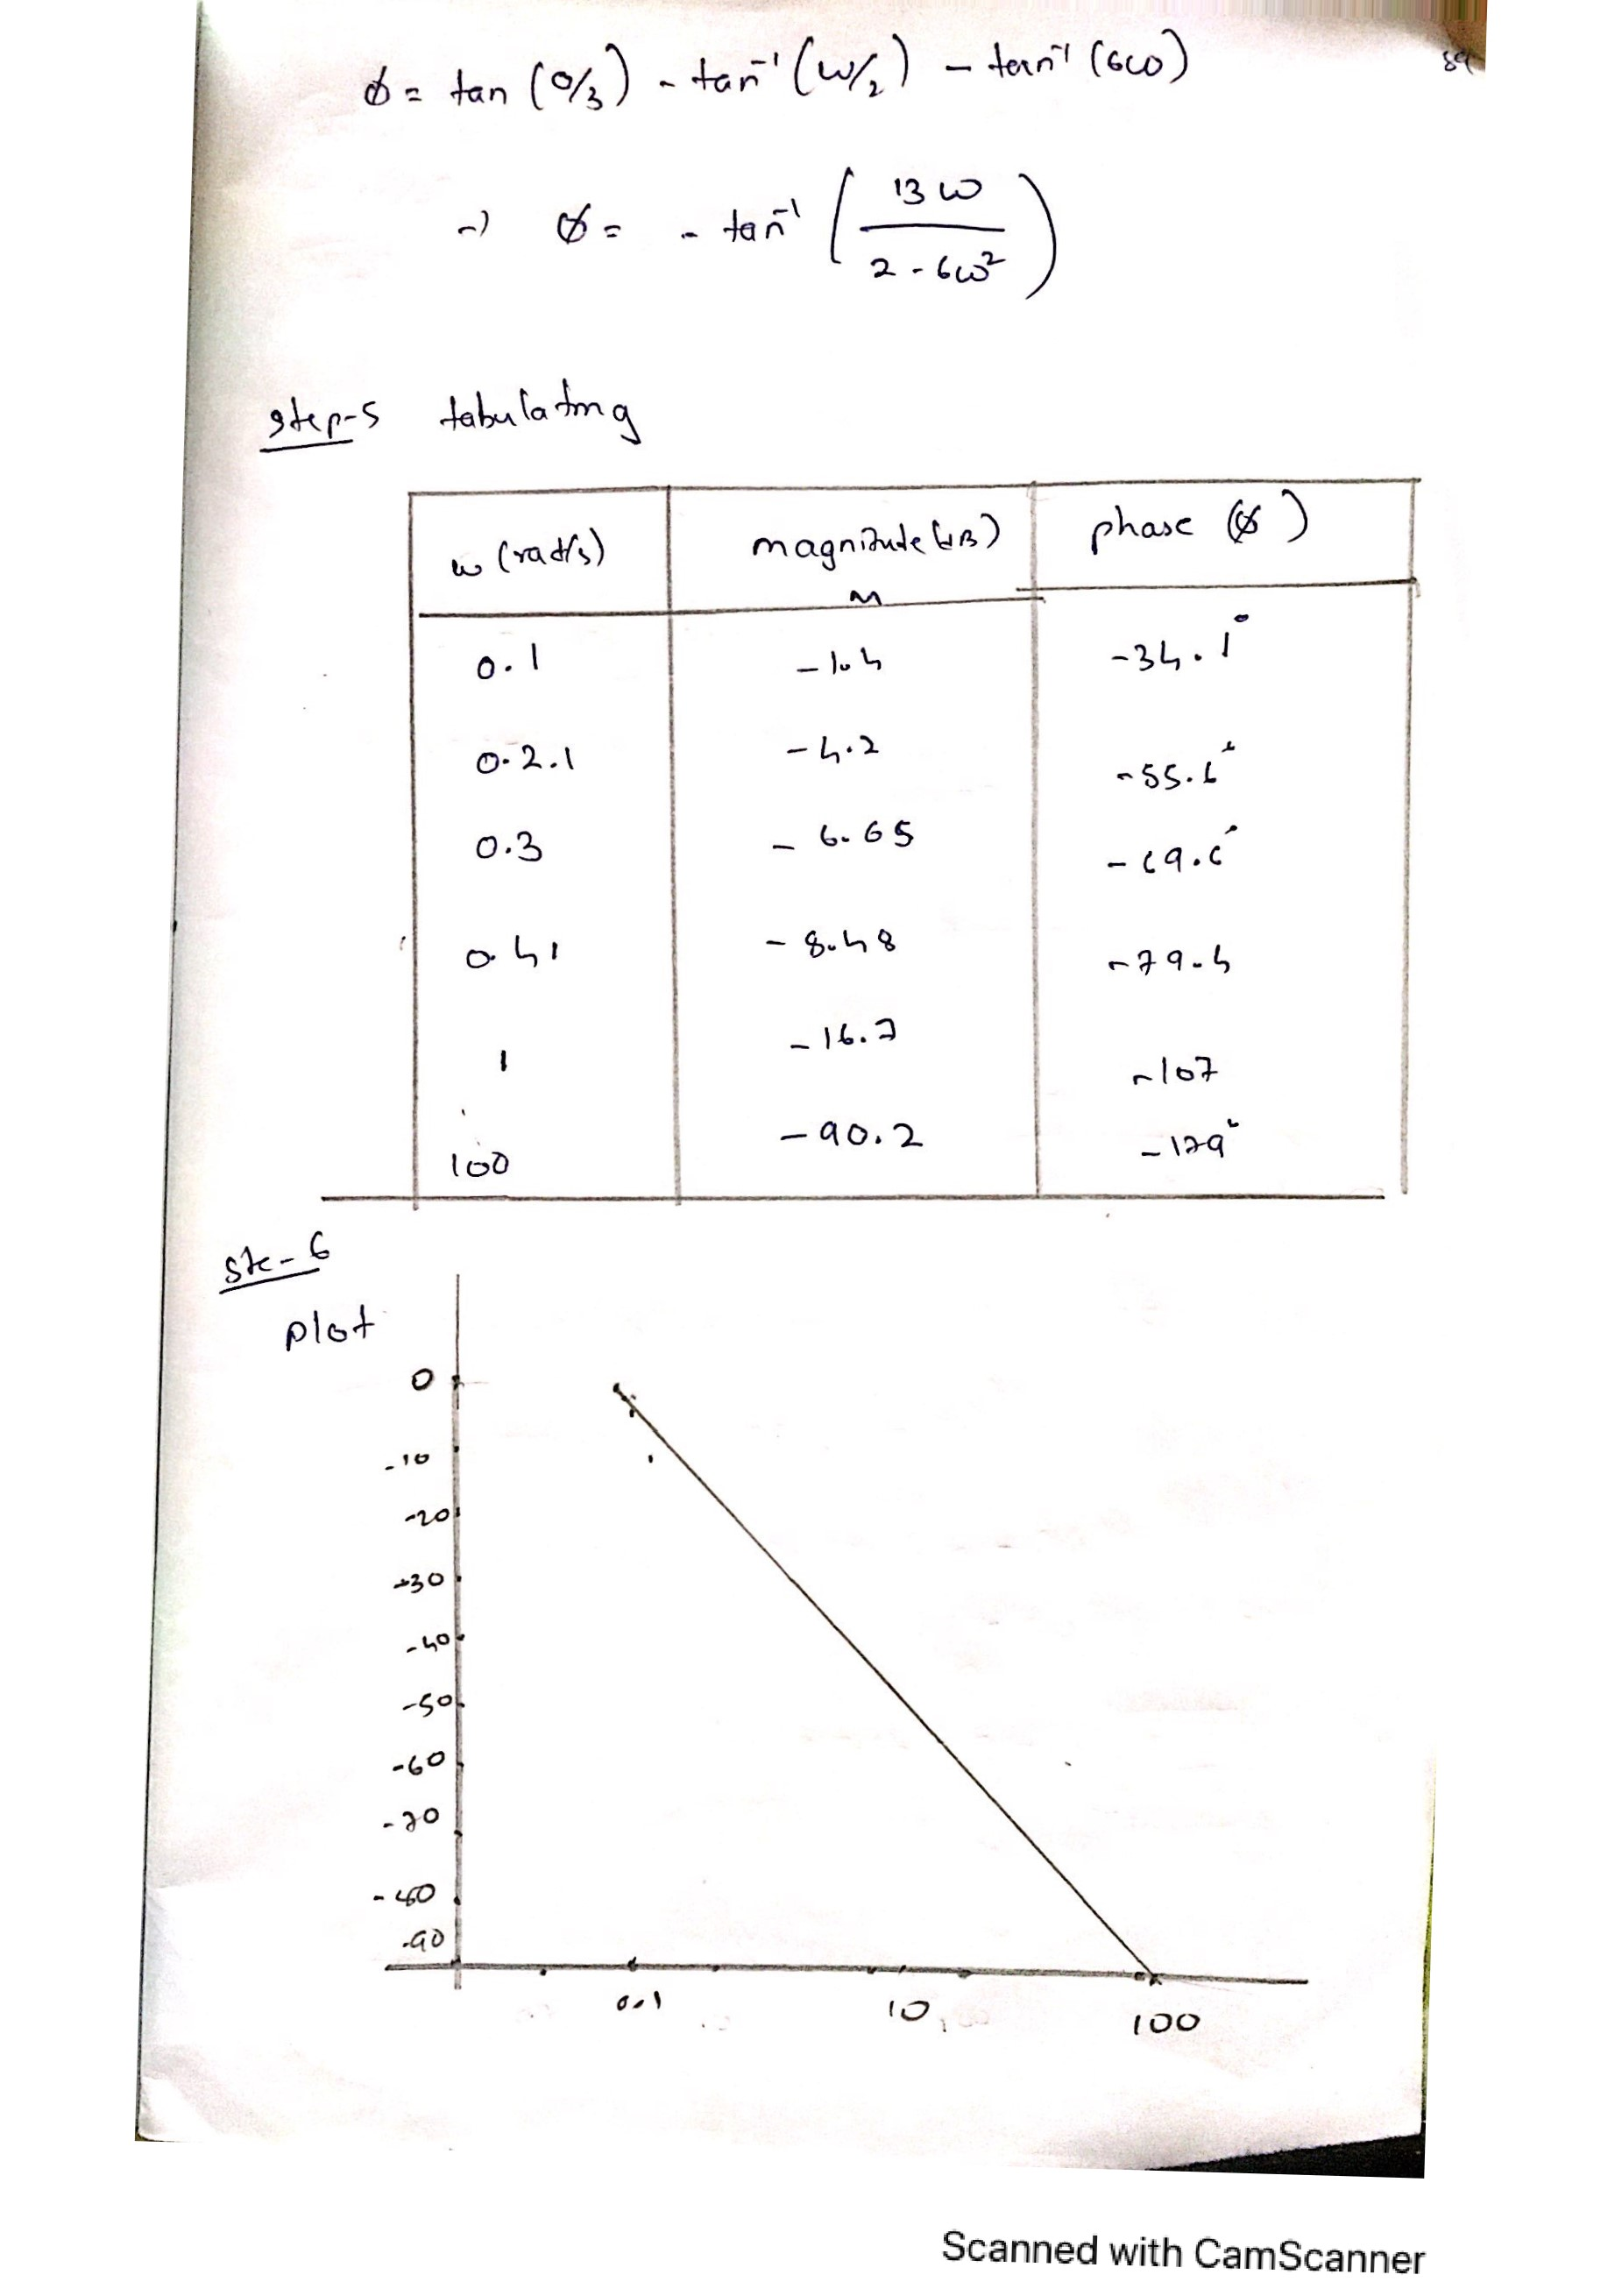 89
ϕ = tan (0/3) - tan⁻¹ (ω/2) - tan⁻¹ (6ω)
⇒ ϕ = - tan⁻¹ (13ω / 2-6ω²)
step-5 tabulating
ω (rad/s) magnitude (dB) M phase (ϕ)
0.1 -1.4 -34.1°
0.2.1 -4.2 -55.6°
0.3 -6.65 -69.6°
0.41 -8.48 -79.4
1 -16.7 -107
100 -90.2 -179°
ste-6
plot
0
-10
-20
-30
-40
-50
-60
-70
-90
0.1 10 100
Scanned with CamScanner